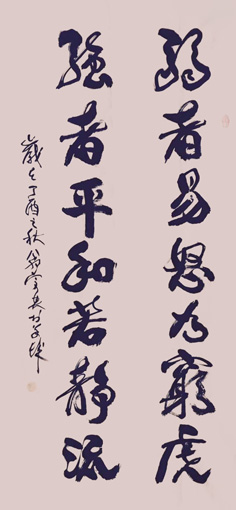 弱者易怒如窮虎
强者平和若静流
歲在丁酉之秋